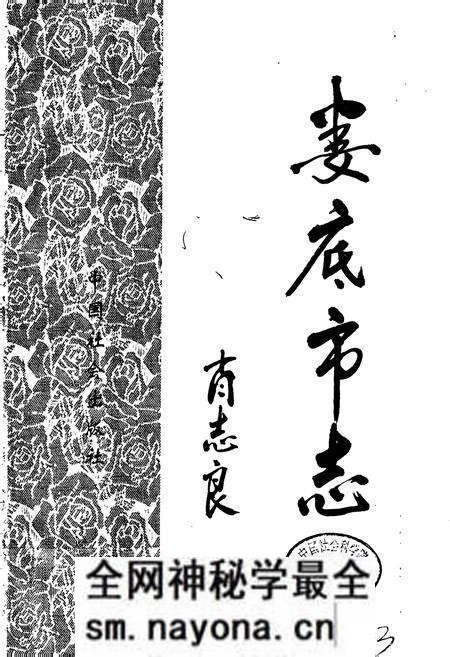 娄底市志
肖志良
中国社会出版社
中国社会科学院
全网神秘学最全
sm.nayona.cn
3